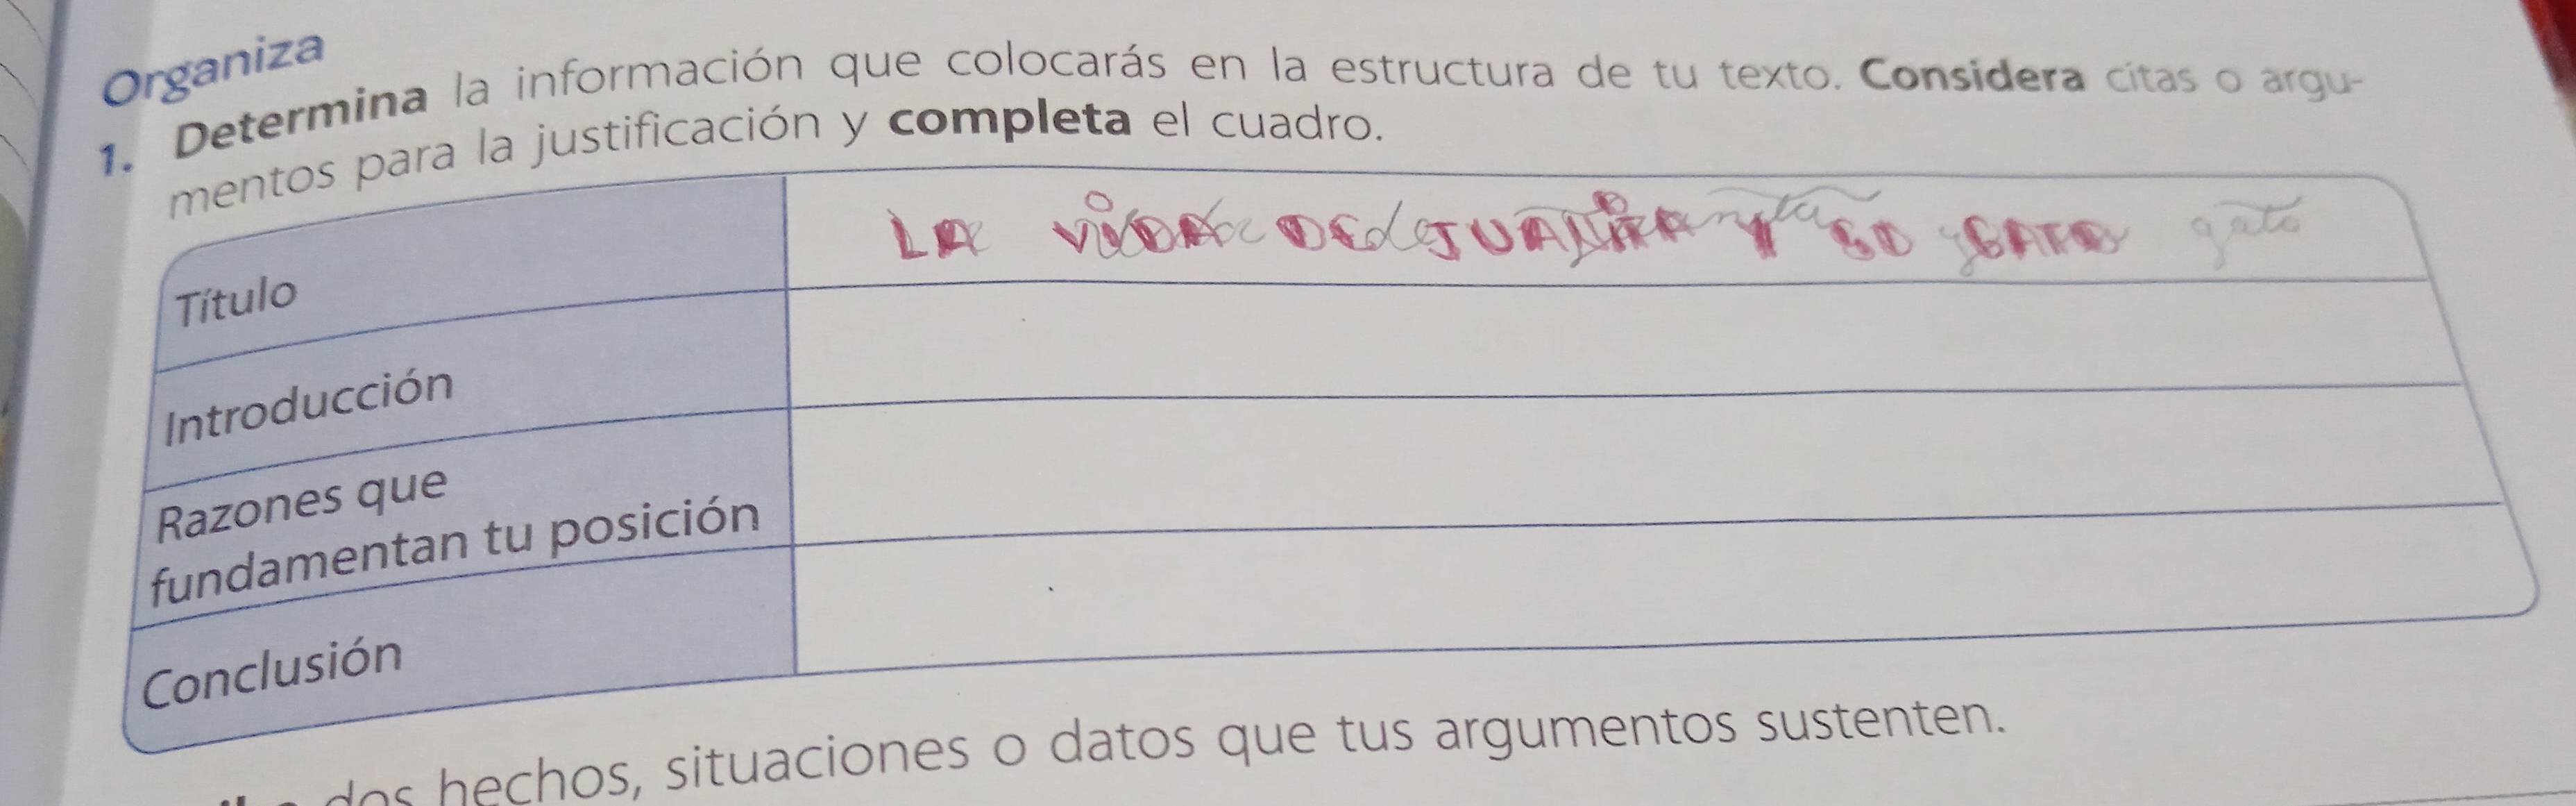 Organiza
1. Determina la información que colocarás en la estructura de tu texto. Considera citas o argu-
mentos para la justificación y completa el cuadro.
Título
LA VIDA DE JUANITA Y SU GATO gato
Introducción
Razones que
fundamentan tu posición
Conclusión
dos hechos, situaciones o datos que tus argumentos sustenten.